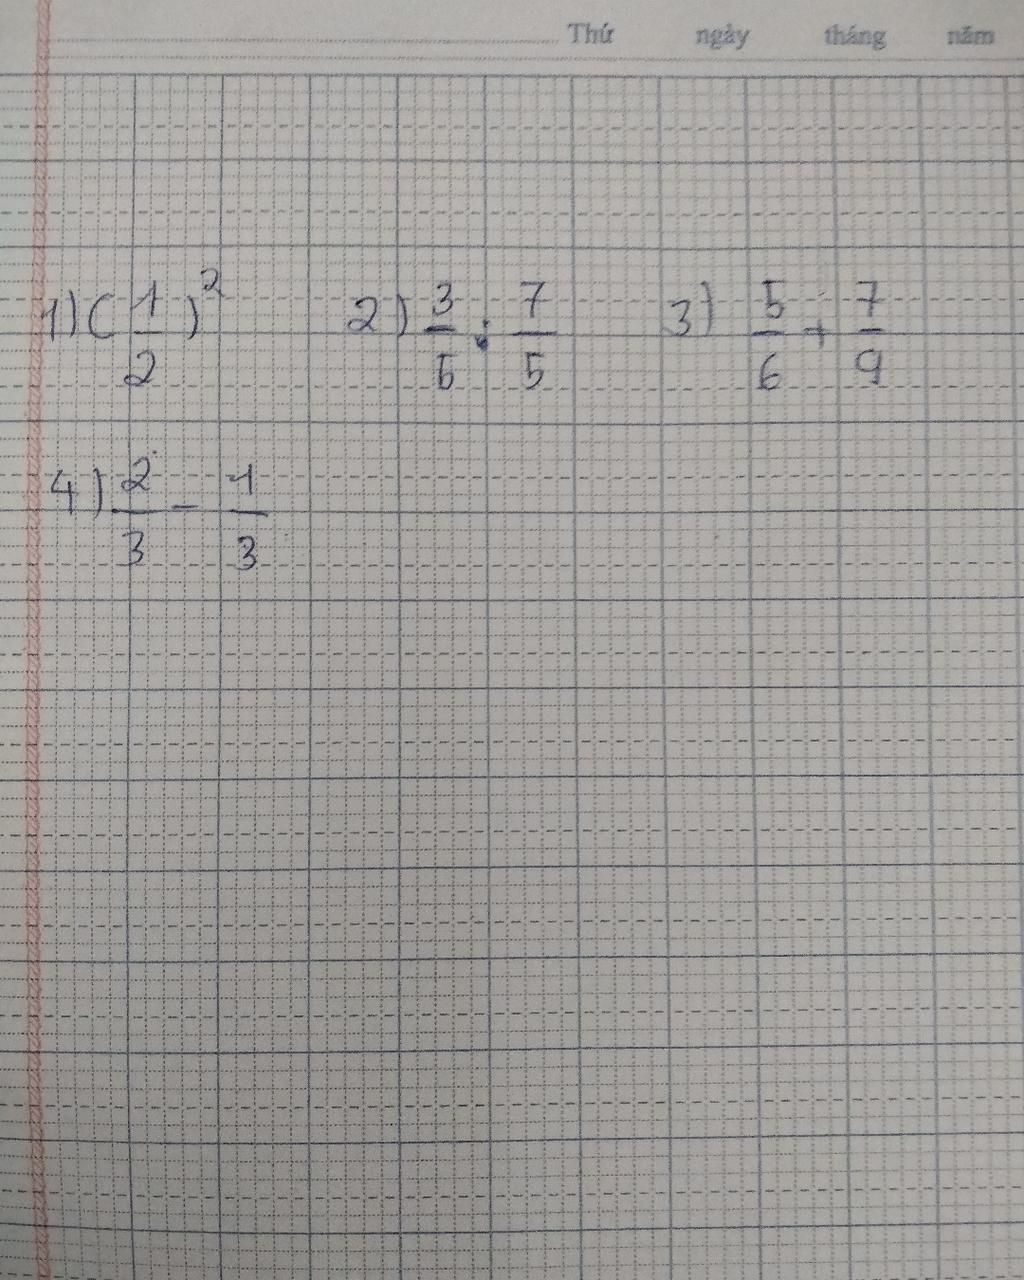 Thứ ngày tháng năm
1) (1/2)² 2) 3/5 : 7/5 3) 5/6 + 7/9
4) 2/3 - 1/3